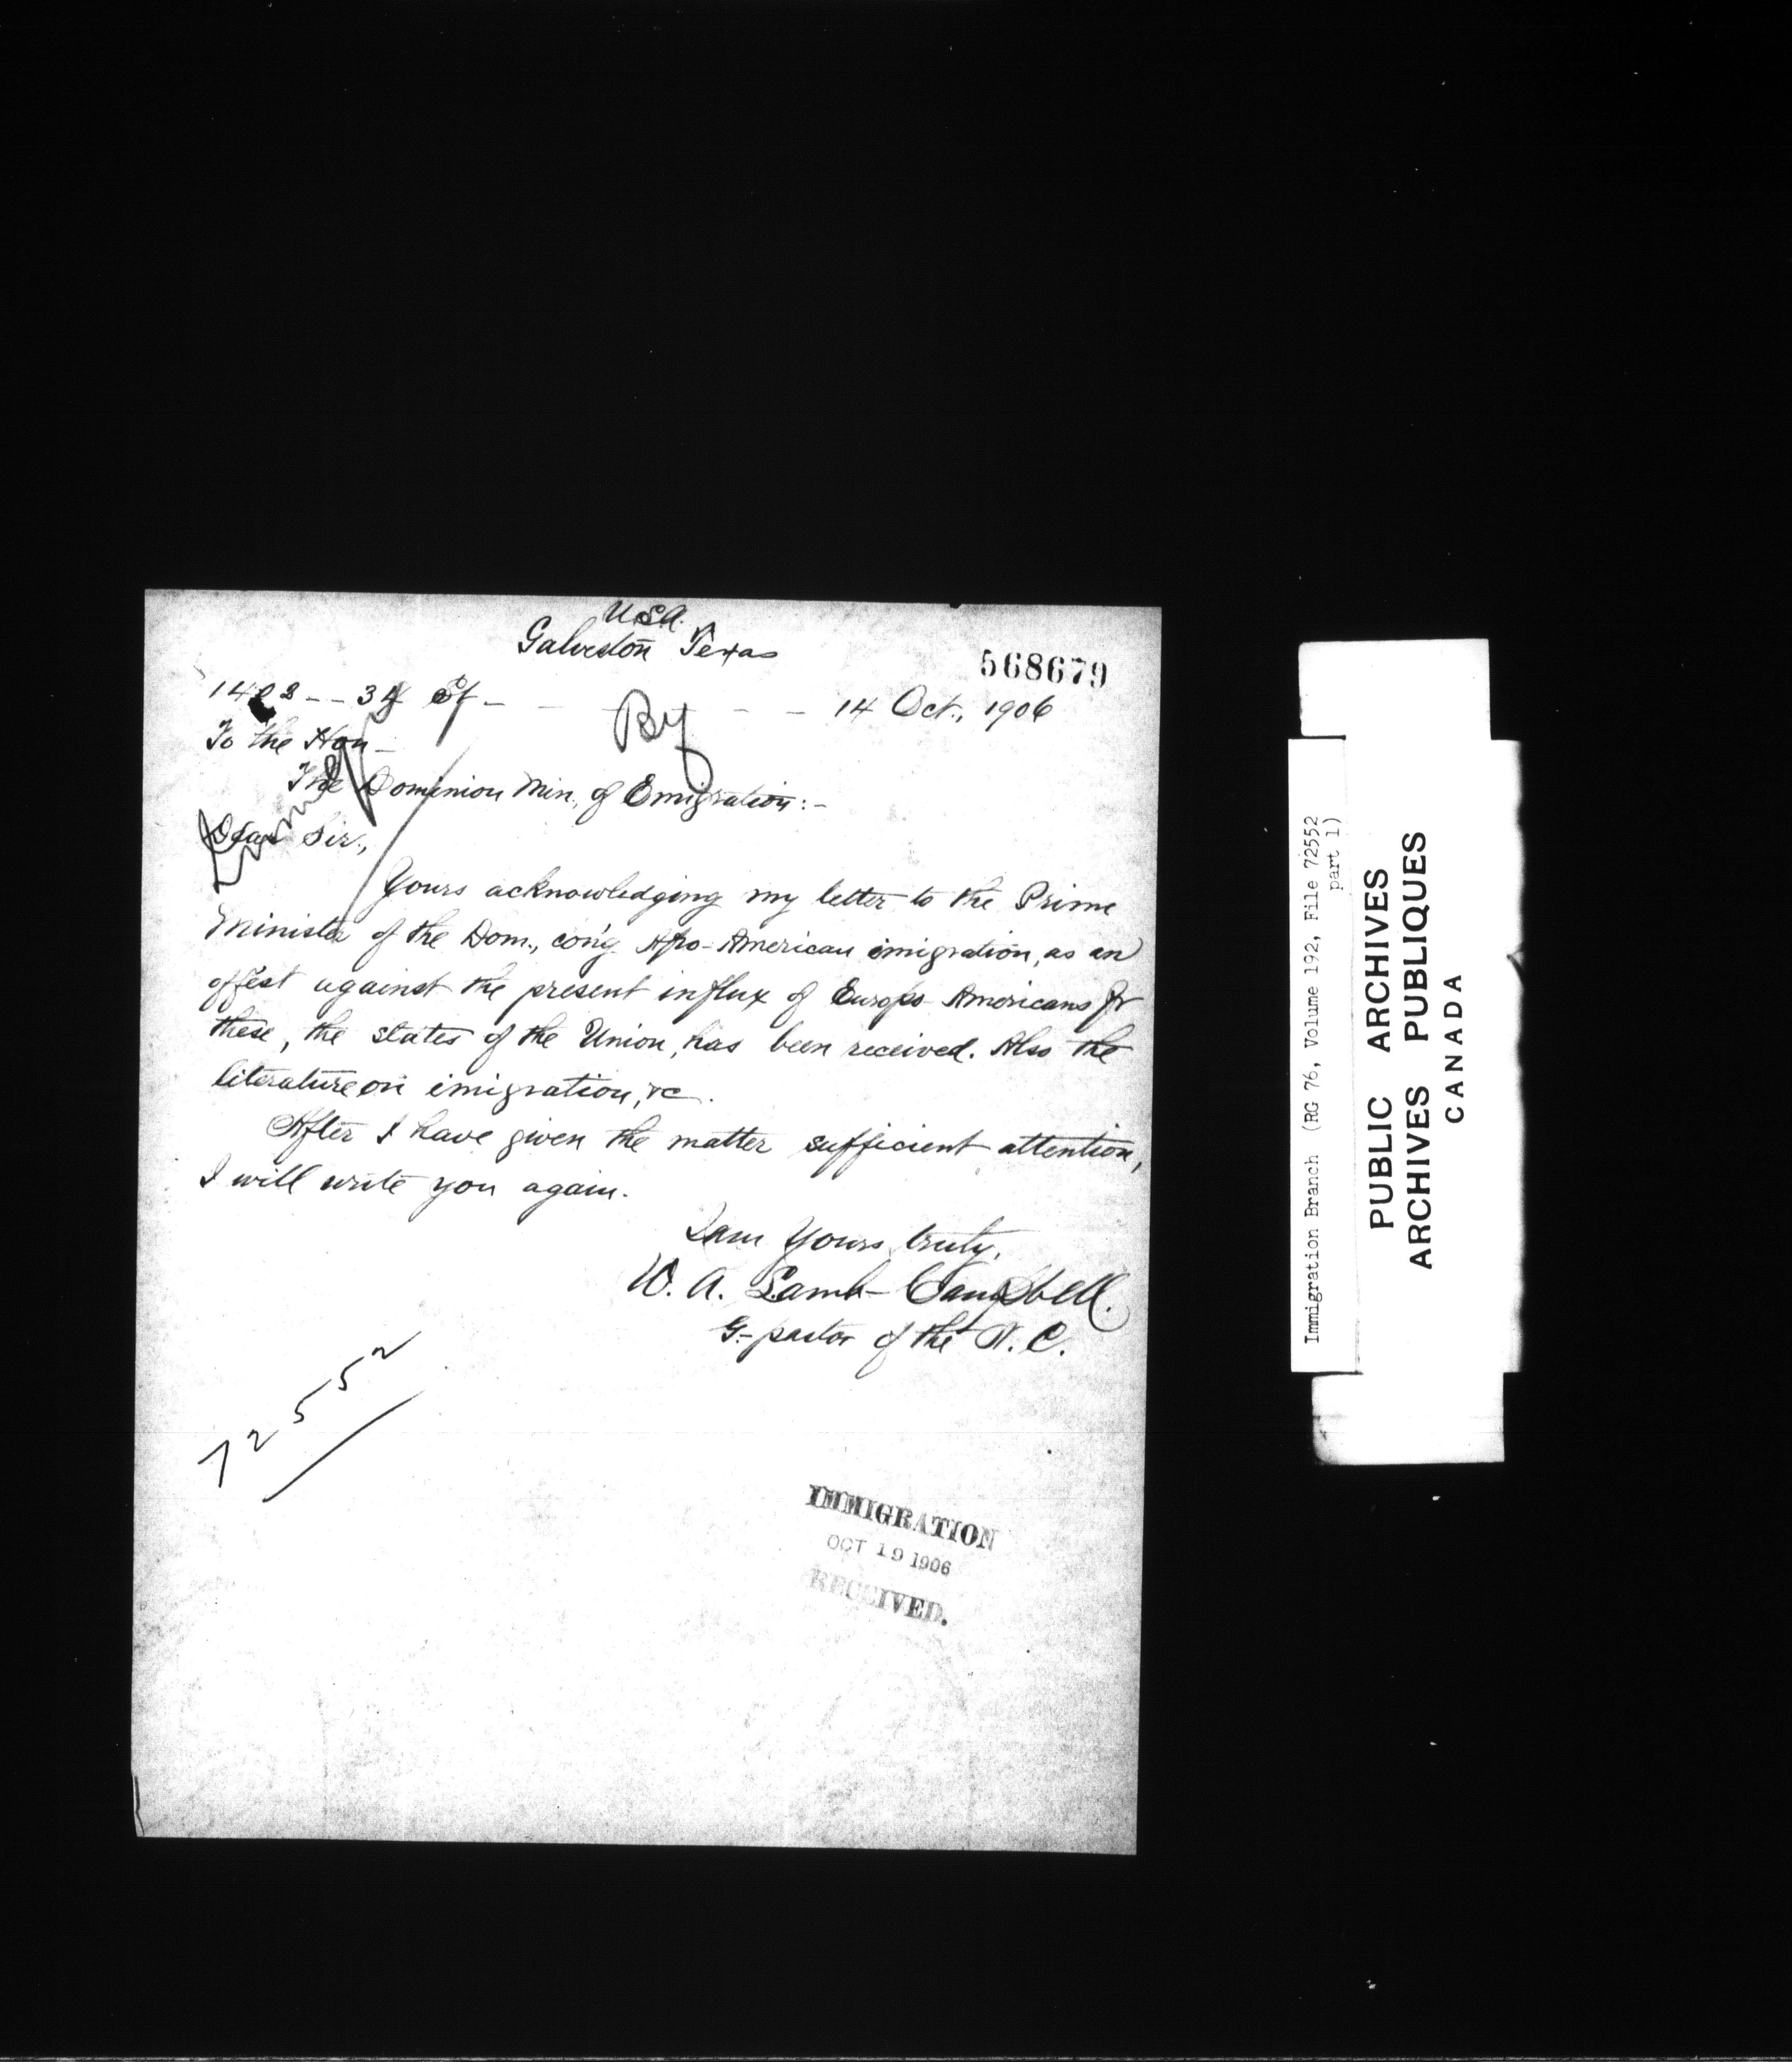 U.S.A.
Galveston Texas
568679
34 St - - - - 14 Oct., 1906
By
To the Hon -
The Dominion Min. of Emigration:-
Dear Sir.,
Yours acknowledging my letter to the Prime
Minister of the Dom., con'g Afro-American imigration, as an
offest against the present influx of Europo-Americans fr
these, the states of the Union, has been received. Also the
literature on imigration, &c.
After I have given the matter sufficient attention,
I will write you again.
I am Yours truly,
W. A. Lamb-Campbell.
G.-pastor of the C.
72552
IMMIGRATION
OCT 19 1906
RECEIVED.
Immigration Branch (RG 76, Volume 192, File 72552
part 1)
PUBLIC ARCHIVES
ARCHIVES PUBLIQUES
CANADA